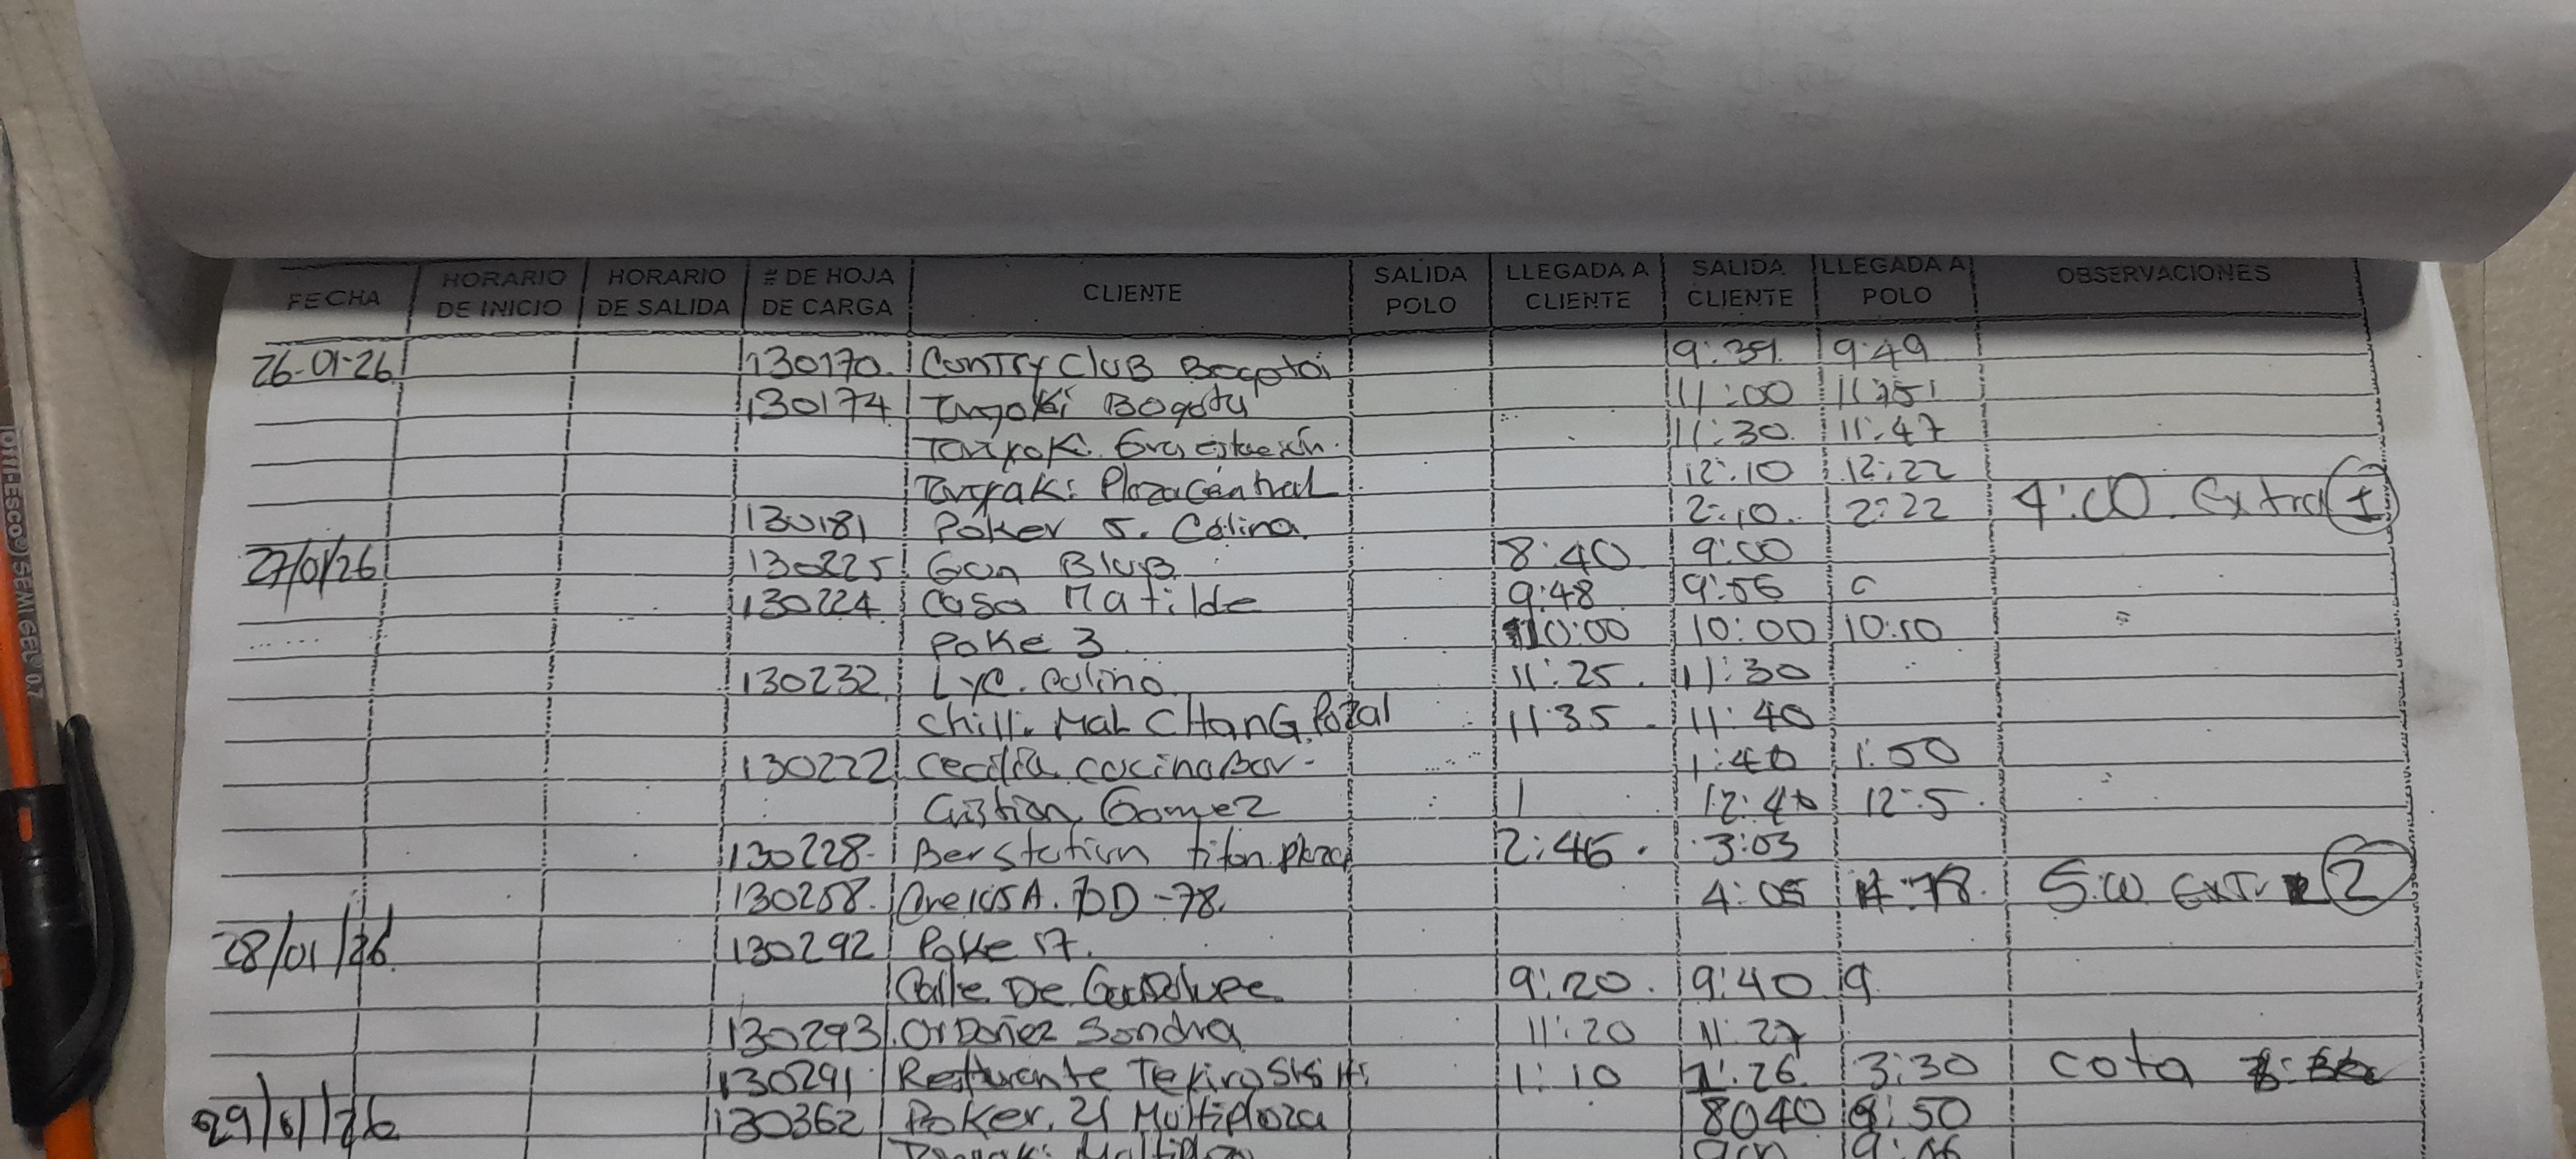 FECHA HORARIO DE INICIO HORARIO DE SALIDA # DE HOJA DE CARGA CLIENTE SALIDA POLO LLEGADA A CLIENTE SALIDA CLIENTE LLEGADA A POLO OBSERVACIONES
26-01-26 130170. Contry Club Bogota 9:39. 9:49
130174 Bogota 11:00 11:51
11:30. 11:47
Plaza Central 12:10 12:22
130181 Poker 5. Colina. 2:10. 2:22 4:00. Extra 1
27/01/26 130225. Gun Blub. 8:40. 9:00
130224 Casa Matilde 9:48 9:56
Poke 3. 10:00 10:00 10:10
130232 Lyc. Colina. 11:25. 11:30
Chilli. Mal CHanG. 11:35. 11:40
130222 Cecilia cocina Bar- 1:40 1:50
Cristian Gomez 12:40 12:5.
130228- Berstation titan plaza 2:46. 3:03
130258. DD-78. 4:05 4:18. 5:00 EXT 2
28/01/26 130292 Poke 17.
Calle De Guadalupe 9:20. 9:40 9
130293 Ordoñez Sondra 11:20 11:27
130291 Resturante 1:10 1:26. 3:30 cota
29/01/26 130362 Poker. 21 Multiplaza 8040 8:50